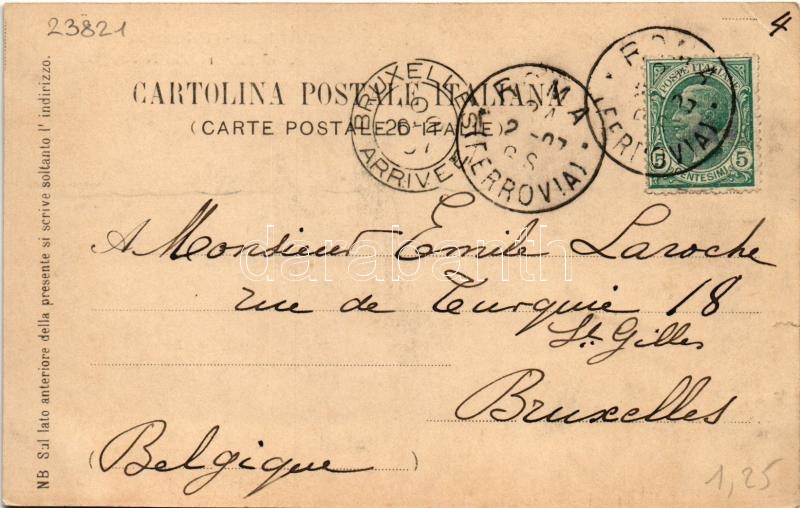 23821
4
POSTE ITALIANE
5 5
CENTESIMI
ROMA
(FERROVIA)
ROMA
24
2-07
(FERROVIA)
BRUXELLES
26
07
ARRIVEE
CARTOLINA POSTALE ITALIANA
(CARTE POSTALE D'ITALIE)
A Monsieur Emile Laroche
rue de Turquie 18
St. Gilles
Bruxelles
(Belgique)
1,25
NB Sul lato anteriore della presente si scrive soltanto l'indirizzo.
darabanth